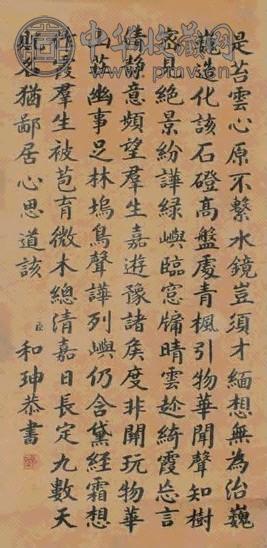 中华收藏网
是苔雲心原不繫水鏡豈須才緬想無為治巍
造化該石磴高盤處青楓引物華聞聲知樹
密見絕景紛譁綠嶼臨窓牖晴雲趁綺霞忘言
清靜意頻望羣生嘉遊豫諸矦度非關玩物華
山莊幽事足林塢鳥聲譁列嶼仍含黛經霜想
霞羣生被苞育微木總清嘉日長定九數天
猶鄙居心思道該
臣和珅恭書